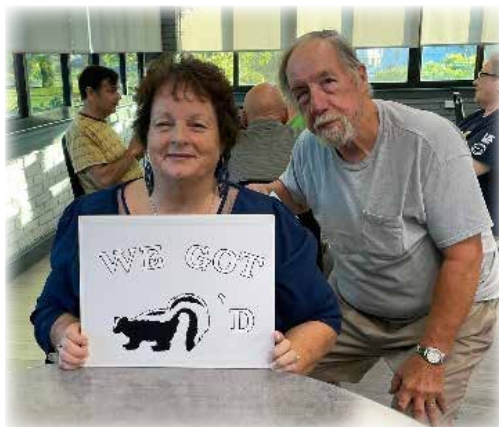 WE GOT
'D